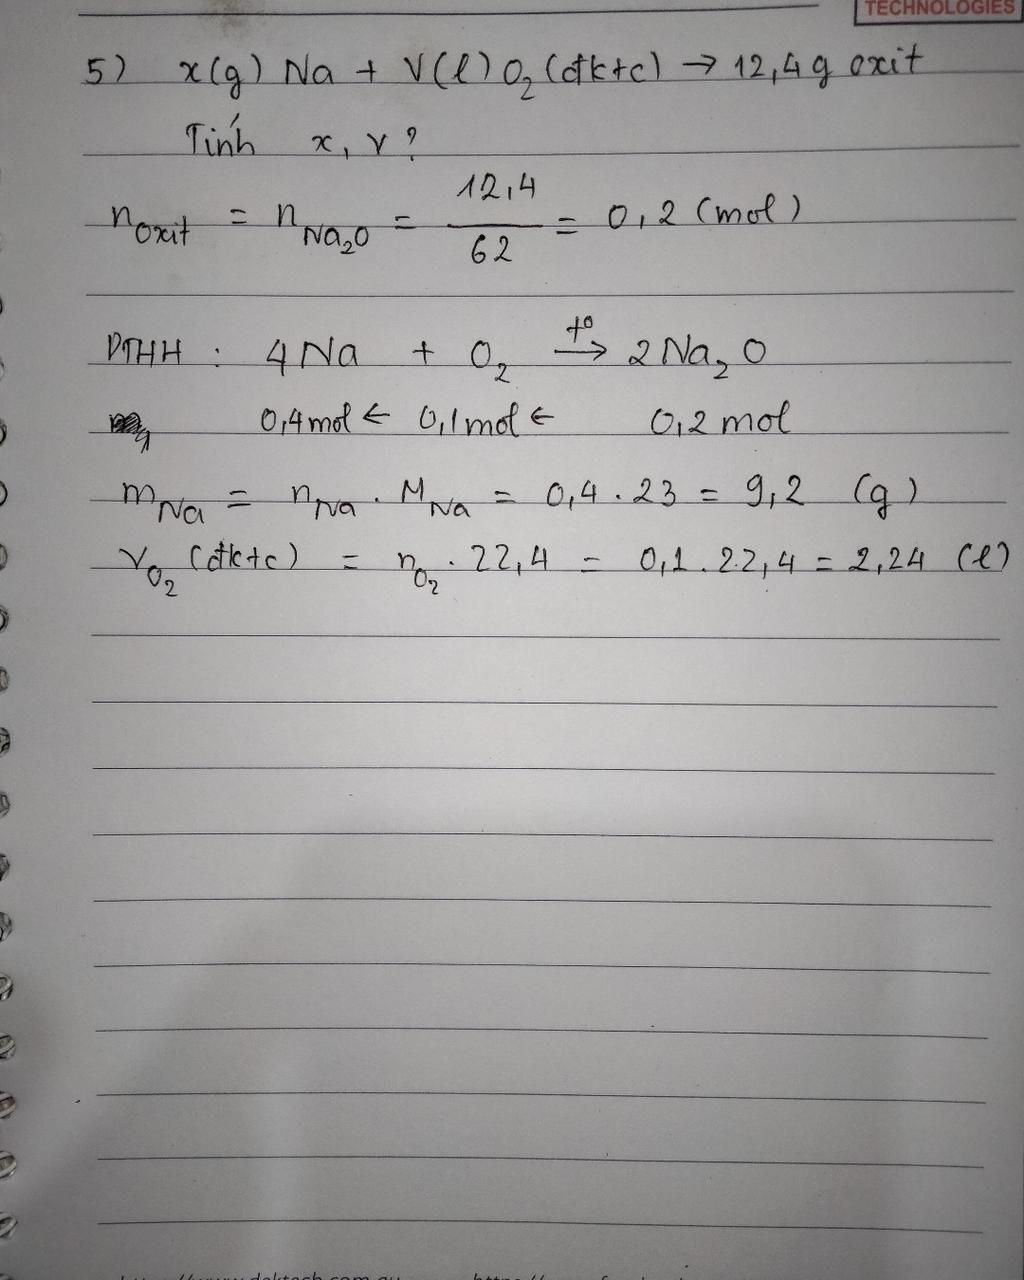 TECHNOLOGIES
5) x(g) Na + V(l) O₂ (đktc) → 12,4 g oxit
Tính x, V?
n oxit = n Na₂O = 12,4 / 62 = 0,2 (mol)
PTHH : 4 Na + O₂ t⁰→ 2 Na₂O
0,4 mol ← 0,1 mol ← 0,2 mol
m Na = n Na . M Na = 0,4 . 23 = 9,2 (g)
V O₂ (đktc) = n O₂ . 22,4 = 0,1 . 22,4 = 2,24 (l)